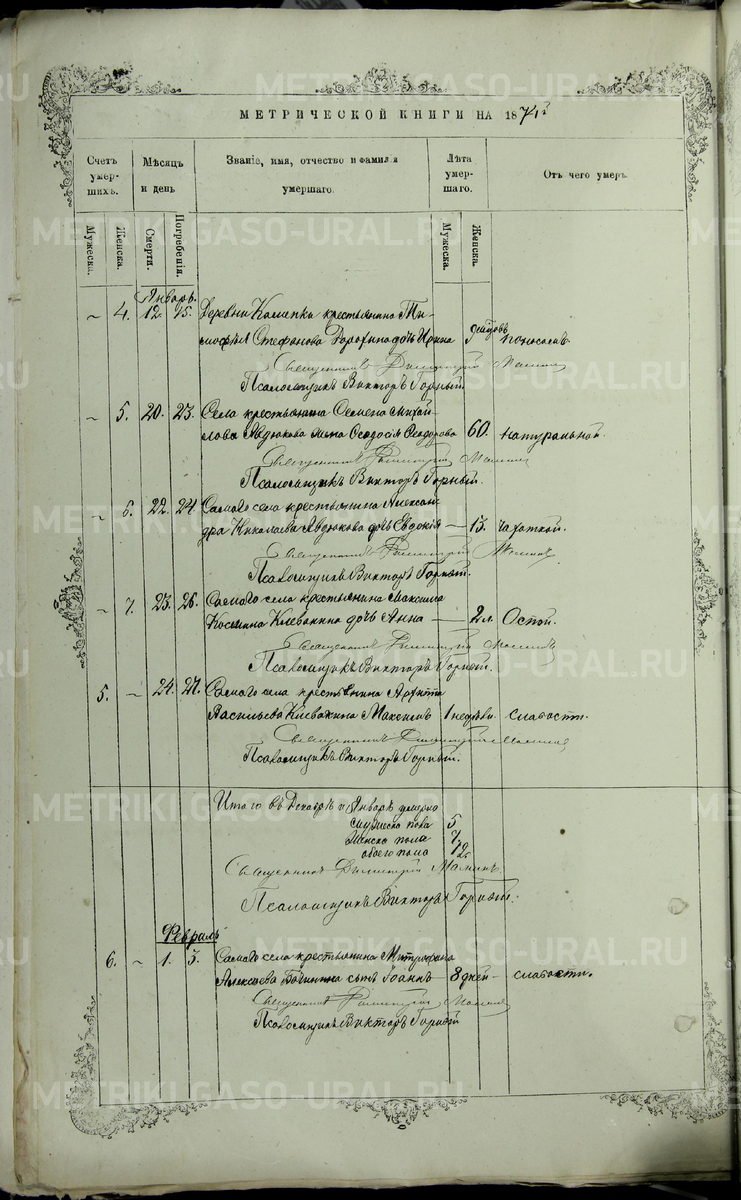 МЕТРИЧЕСКОЙ КНИГИ НА 187
Счетъ умер-шихъ.
Мѣсяцъ и день
Званіе, имя, отчество и фамилія умершаго.
Лѣта умер-шаго.
Отъ чего умеръ.
Мужеска.
Женска.
Смерти.
Погребенія.
Мужеска.
Женска.
Январь.
~ 4. 12. 15. Деревни крестьянина Ти-
мофея Стефанова дочь Ирина
поносомъ
Священникъ Димитрій
Псаломщикъ Викторъ Горный.
~ 5. 20. 23. Села крестьянина Семена Михай-
лова Авдюкова жена Ѳеодосія Ѳеодорова 60. натуральной.
Священникъ Димитрій
Псаломщикъ Викторъ Горный.
~ 6. 22. 24. Самаго села крестьянина Алексан-
дра Николаева Авдюкова дочь Евдокія — чахоткой.
Священникъ Димитрій
Псаломщикъ Викторъ Горный.
~ 7. 23. 26. Самаго села крестьянина Максима
Клевакина дочь Анна — 2 л. Оспой.
Священникъ Димитрій
Псаломщикъ Викторъ Горный.
5. ~ 24. 27. Самаго села крестьянина
Васильева Клевакина Максимъ 1 недѣли слабости.
Священникъ Димитрій
Псаломщикъ Викторъ Горный.
Итого въ Декабрѣ и Январѣ умерло
мужеска пола 5
женска пола 7
обоего пола 12
Священникъ Димитрій
Псаломщикъ Викторъ Горный.
Февраль
6. ~ 1. 3. Самаго села крестьянина Митрофана
Алексѣева сынъ Іоаннъ — 8 дней — слабости.
Священникъ Димитрій
Псаломщикъ Викторъ Горный
METRIKI.GASO-URAL.RU